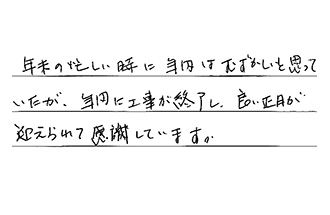 年末の忙しい時に年内はむずかしいと思って
いたが、年内に工事が終了し、良い正月が
迎えられて感謝しています。